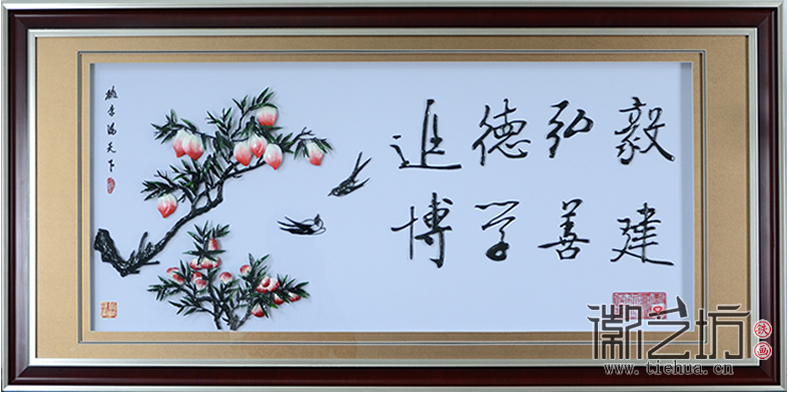 桃李满天下
進德弘毅
博学善建
徽艺坊
铁画
www.tiehua.cn